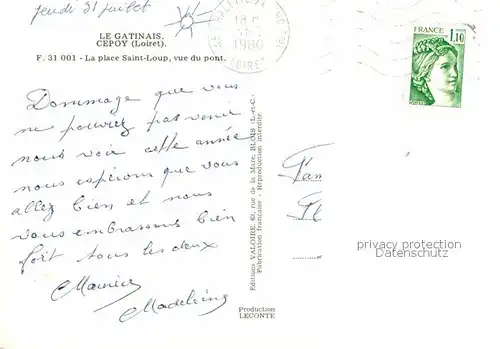 jeudi 31 juillet
LE GATINAIS.
CEPOY (Loiret).
F. 31 001 - La place Saint-Loup, vue du pont.
Dommage que vous
ne pouviez pas venir
nous voir cette année
nous espérons que vous
allez bien et nous
vous embrassons bien
fort tous les deux
Maurice
Madeleine
18 H
1980
LOIRET
FRANCE
1,10
Editions VALOIRE, 63, rue de la Mare, BLOIS (L.-et-C.)
Fabrication française - Reproduction interdite
Production
LECONTE
Fam
privacy protection
Datenschutz